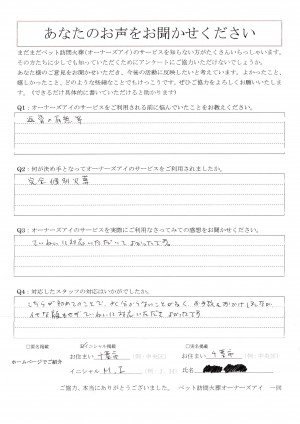 あなたのお声をお聞かせください
まだまだペット訪問火葬(オーナーズアイ)のサービスを知らない方がたくさんいらっしゃいます。
その方たちに少しでも知っていただくためにアンケートにご協力いただけないでしょうか。
あなた様のご意見をお聞かせいただき、今後の活動に反映したいと考えています。よかったこと、
嬉しかったこと、どのような些細なことでもけっこうです。ぜひご協力をよろしくお願いいたします。
(できるだけ具体的に書いていただけると助かります)
Q1：オーナーズアイのサービスをご利用される前に悩んでいたことをお教えください。
Q2：何が決め手となってオーナーズアイのサービスをご利用されましたか。
完全個別火葬
Q3：オーナーズアイのサービスを実際にご利用なさってみての感想をお聞かせください。
ていねいに対応いただいてよかったです。
Q4：対応したスタッフの対応はいかがでしたか。
こちらが初めてのことで、
ていねいに対応いただきてよかったです
□実名掲載 イニシャル掲載 □匿名掲載
ホームページでご紹介
お住まい 千葉市 (例：中央区) お住まい 千葉市 (例：中央区)
イニシャル M.I (例：I.H) 氏名
ご協力、本当にありがとうございました。 ペット訪問火葬オーナーズアイ 一同